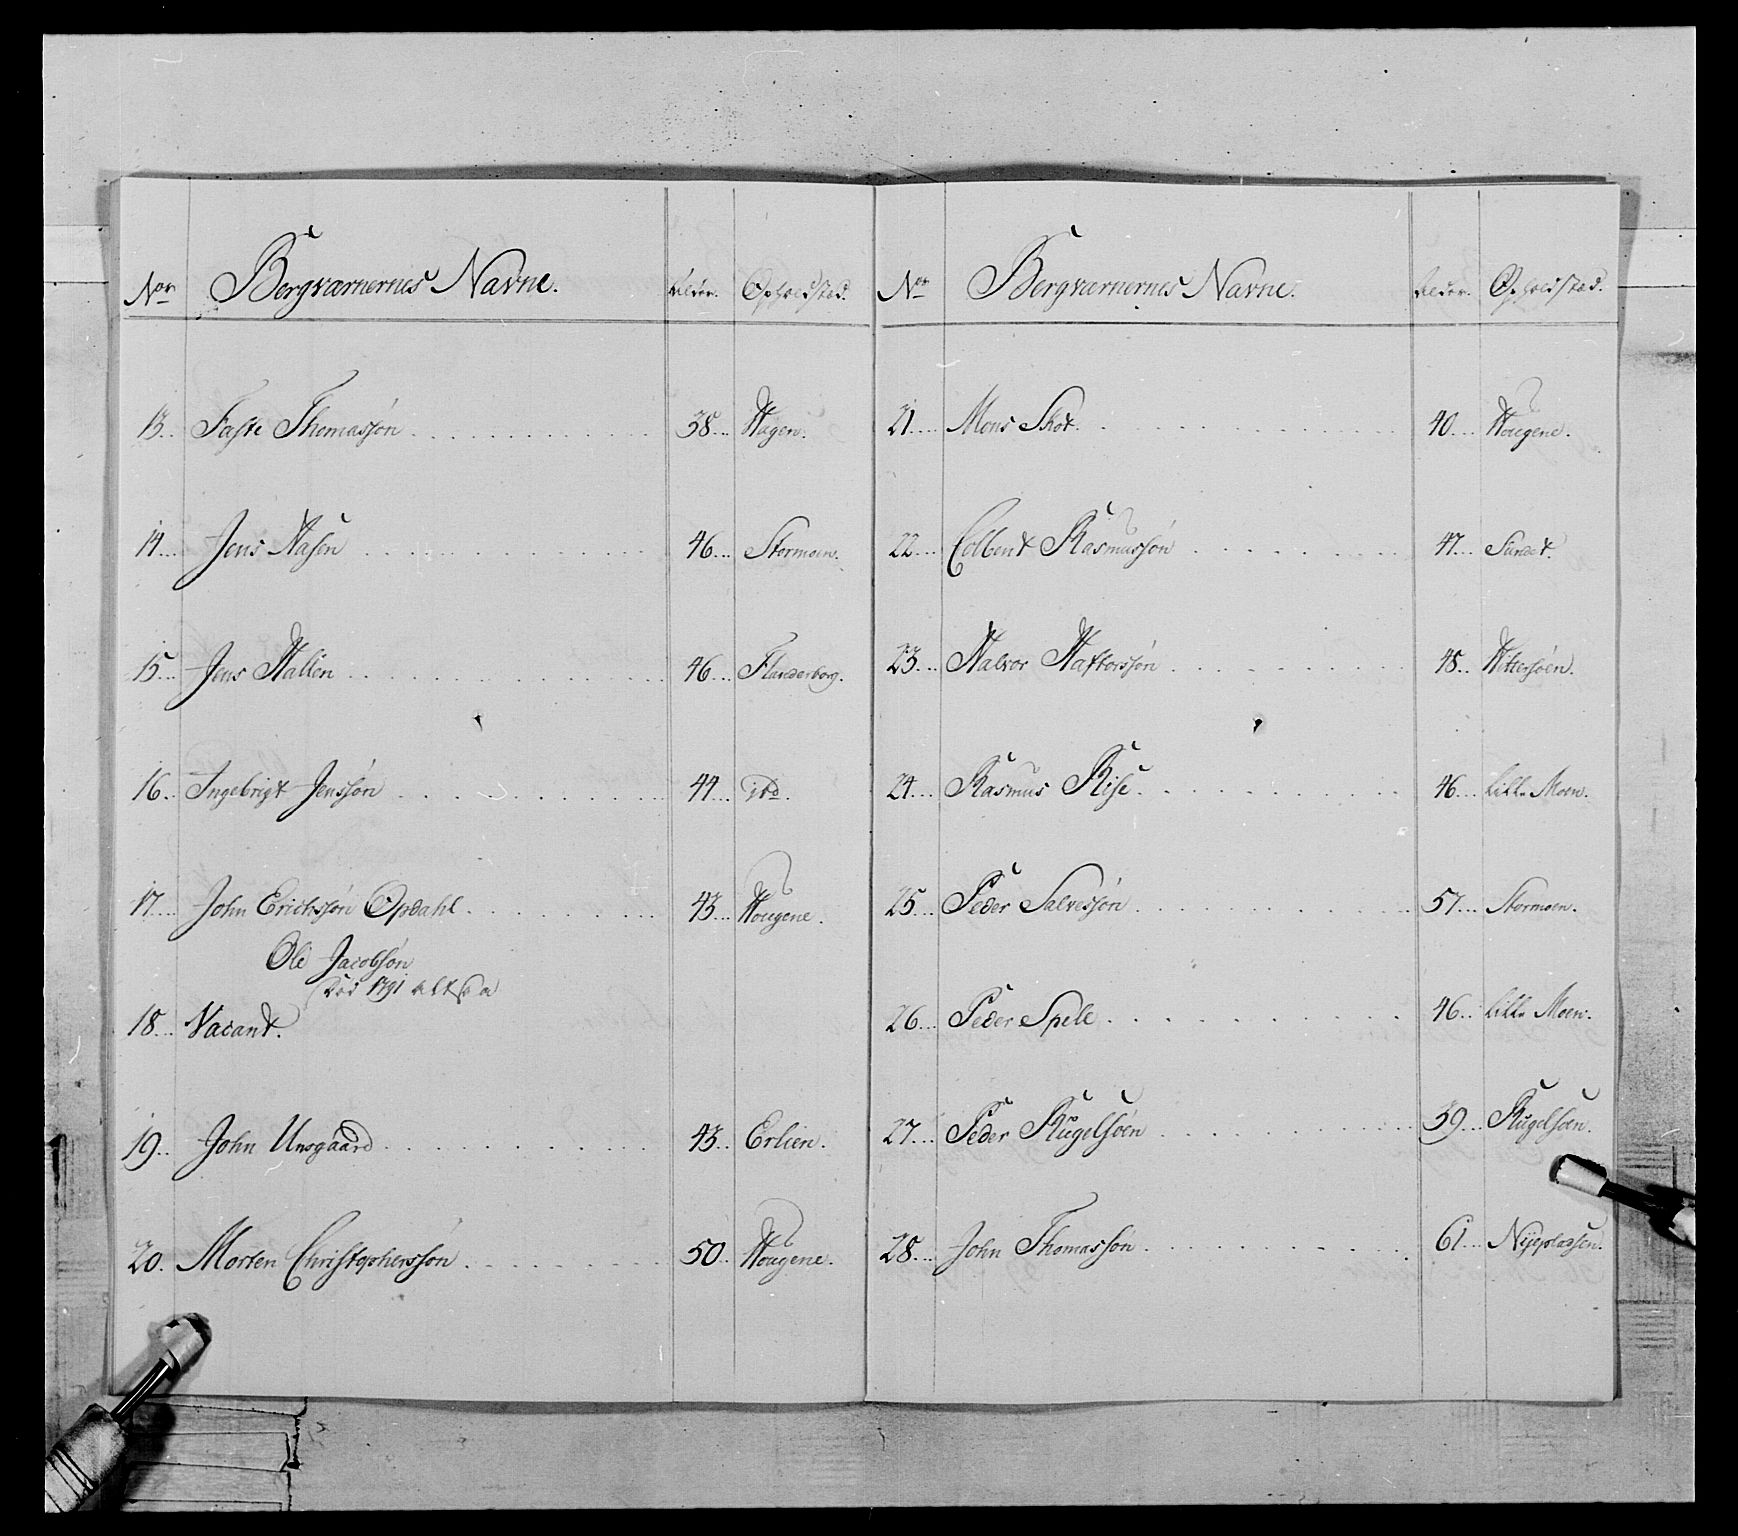 Nor Bergværnernes Navne. Alder. Opholdsted.
13. Faste Thomassøn 38 Hagen.
14. Jens Aasen 46 Stormoen.
15. Jens Hallen 46 Flanderborg.
16. Ingebrigt Jenssøn 44 ibd.
17. John Erichssøn Opdahl 43 Hougene.
Ole Jacobsøn
død 1791 altsaa
18. Vacant.
19. John Unsgaard 43 Erlien.
20. Morten Christophersøn 50 Hougene.
Nor Bergværnernes Navne. Alder. Opholdsted.
21. Mons Skot. 40 Hougene.
22. Colbent Rasmussøn 47 Sundet.
23. Halvor Haftorssøn 48 Hittersøen.
24. Rasmus Rise. 46 Lille Moen.
25. Peder Salvessøn 57 Stormoen.
26. Peder Spell 46 Lille Moen.
27. Peder Rugelsøen 39 Rugelsøen.
28. John Thomassøn 61 Nyeplassen.